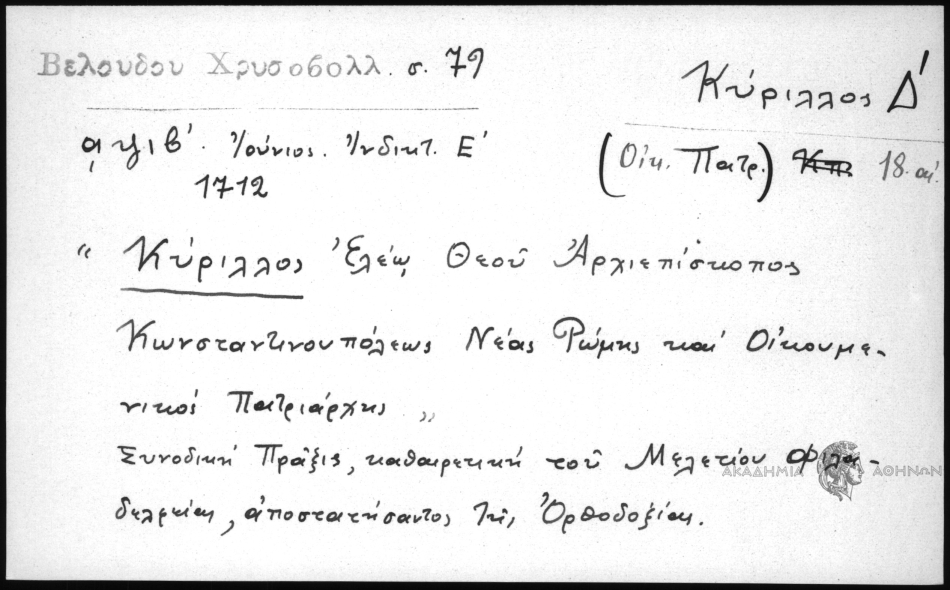 Βελουδου Χρυσοβολλ. σ. 79
Κύριλλος Δ'
͵αψιβ'. Ἰούνιος. Ἰνδικτ. Ε'
(Οἰκ. Πατρ.) 18. αἰ.
1712
“ Κύριλλος Ἐλέῳ Θεοῦ Ἀρχιεπίσκοπος
Κωνσταντινουπόλεως Νέας Ρώμης καί Οἰκουμε-
νικός Πατριάρχης „
Συνοδική Πρᾶξις, καθαιρετική τοῦ Μελετίου Φιλα-
δελφείας, ἀποστατήσαντος τῆς Ὀρθοδοξίας.
ΑΚΑΔΗΜΙΑ ΑΘΗΝΩΝ